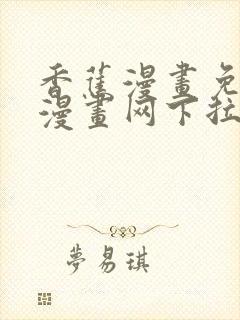 香蕉漫畫免
漫畫网下拉
夢易琪